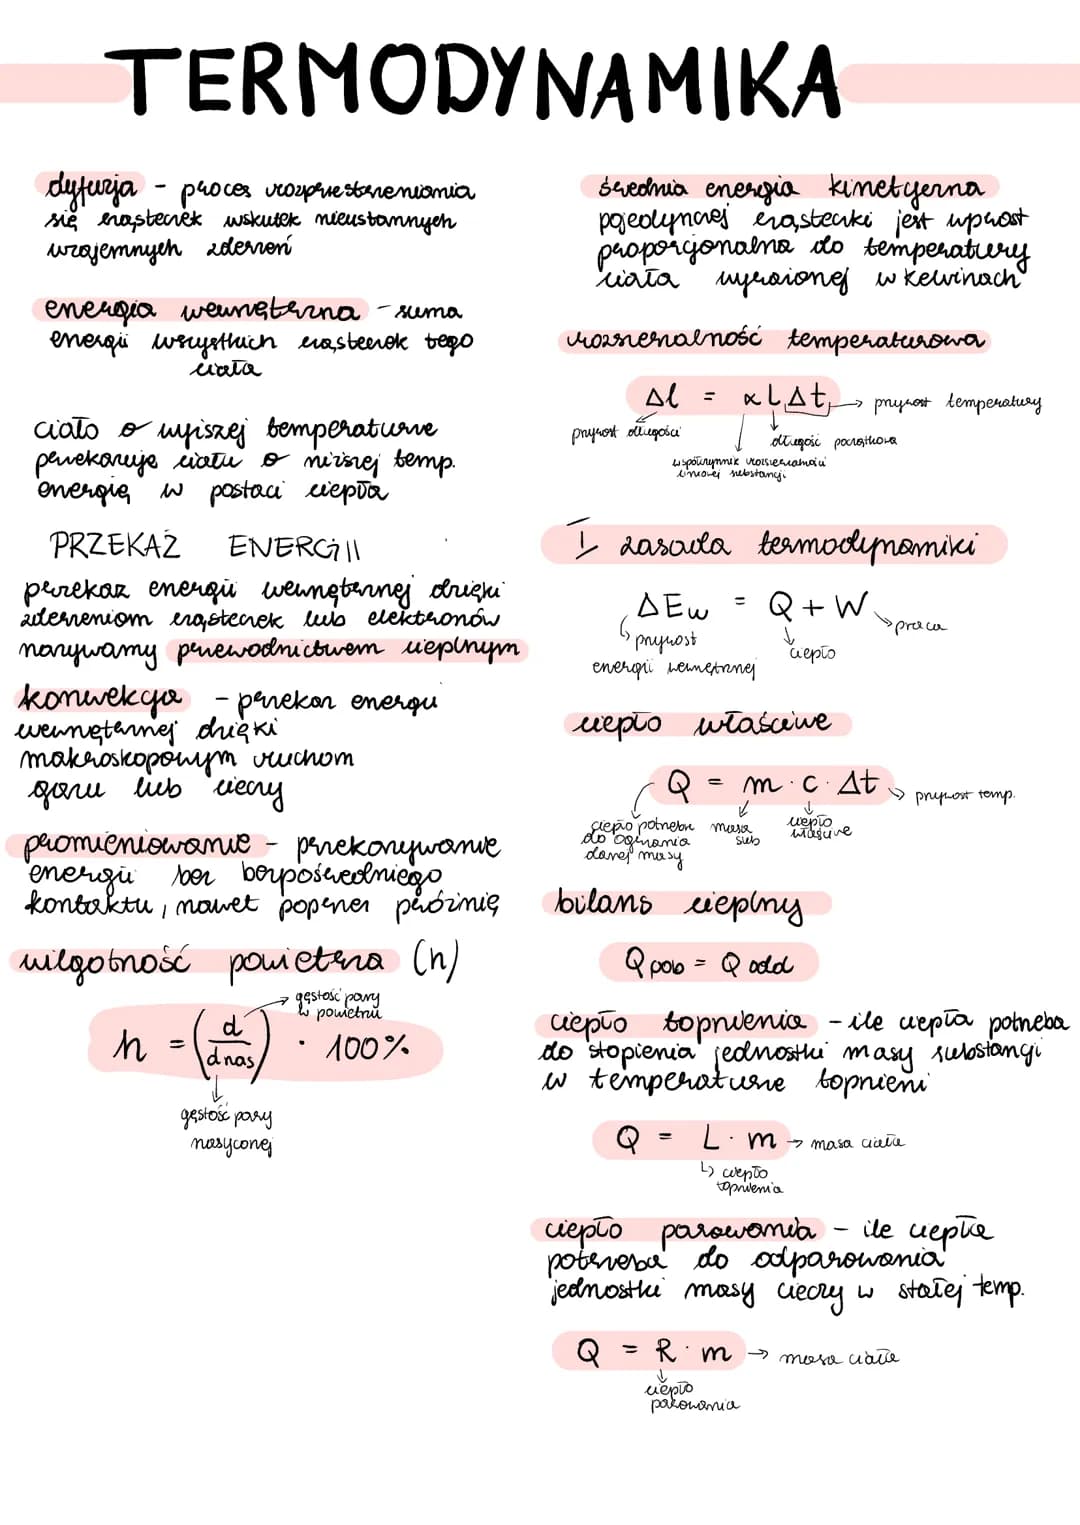 TERMODYNAMIKA
dyfuzja - proces rozprzestrzeniania
się cząsteczek wskutek nieustannych
wzajemnych zderzeń
energia wewnętrzna - suma
energii wszystkich cząsteczek tego
ciała
ciało o wyższej temperaturze
przekazuje ciału o niższej temp.
energię w postaci ciepła
PRZEKAZ ENERGII
przekaz energii wewnętrznej dzięki
zderzeniom cząsteczek lub elektronów
nazywamy przewodnictwem cieplnym
konwekcja - przekaz energii
wewnętrznej dzięki
makroskopowym ruchom
gazu lub cieczy
promieniowanie - przekazywanie
energii bez bezpośredniego
kontaktu, nawet poprzez próżnię
wilgotność powietrza (h)
gęstość pary
w powietrzu
h = (d / dnas) · 100%
gęstość pary
nasyconej
średnia energia kinetyczna
pojedynczej cząsteczki jest wprost
proporcjonalna do temperatury
ciała wyrażonej w kelwinach
rozszerzalność temperaturowa
Δl = αLΔt → przyrost temperatury
przyrost długości
długość początkowa
współczynnik rozszerzalności
liniowej substancji
I zasada termodynamiki
ΔEw = Q + W → praca
przyrost
energii wewnętrznej
ciepło
ciepło właściwe
Q = m · c · Δt → przyrost temp.
ciepło potrzebne
do ogrzania
danej masy
masa
sub
ciepło
właściwe
bilans cieplny
Q pob = Q odd
ciepło topnienia - ile ciepła potrzeba
do stopienia jednostki masy substancji
w temperaturze topnieni
Q = L · m → masa ciała
ciepło
topnienia
ciepło parowania - ile ciepła
potrzeba do odparowania
jednostki masy cieczy w stałej temp.
Q = R · m → masa ciała
ciepło
parowania